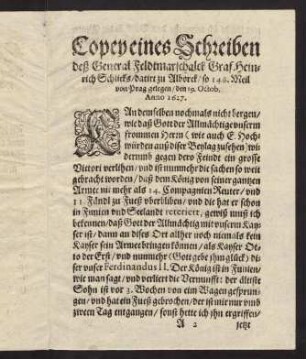 Copey eines Schreiben
deß General Feldtmarschalcks Graf Hein-
rich Schlicks/ datirt zu Alborck/ so 140. Meil
von Prag gelegen/ den 19. Octob.
Anno 1627.
KAn demselben nochmals nicht bergen/
wie daß Gott der Allmächtige vnserm
frommen Herrn (wie auch E. Hoch-
würden auß diser Beylag zusehen) wi-
derumb gegen dero Feindt ein grosse
Victori verlihen/ vnd ist nunmehr die sachen so weit
gebracht worden/ daß dem König von seiner gantzen
Armee nit mehr als 14. Compagnien Reuter/ vnd
11. Fändl zu Fueß vberbliben/ vnd die hat er schon
in Funien vnd Seelandt reteriert, gewiß muß ich
bekennen/ daß Gott der Allmächtig mit vnserm Kay-
ser ist/ dann an dises Ort allher noch niemals kein
Kayser sein Armee bringen können/ als Kayser Ot-
to der Erst/ vnd nunmehr (Gott gebe jhm glück) di-
ser vnser Ferdinandus II. Der König ist in Funien/
wie man sagt/ vnd verliert die Vernunfft: der älteste
Sohn ist vor 3. Wochen von eim Wagen gesprun-
gen/ vnd hat ein Fueß gebrochen/ der ist mir nur vmb
zween Tag entgangen/ sonst hette ich jhn ergriffen/
A 2 jetzt